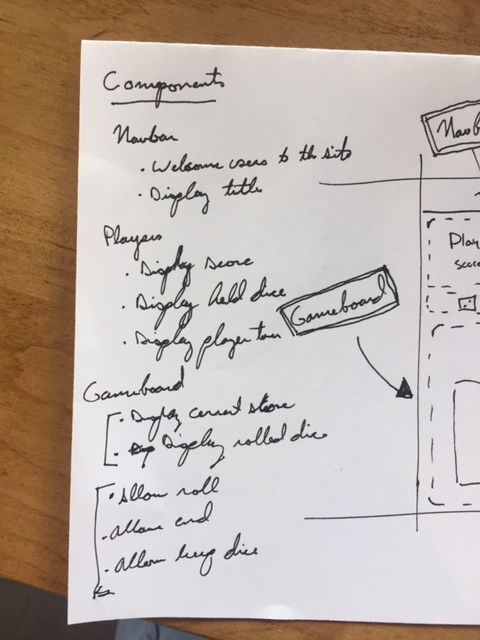 Components
Navbar
• Welcome users to the site
• Display title
Players
• Display score
• Display held dice
• Display player turn
Gameboard
• Display current score
• Display rolled dice
• Allow roll
• Allow end
• Allow keep dice
Gameboard
Navb
Play
score